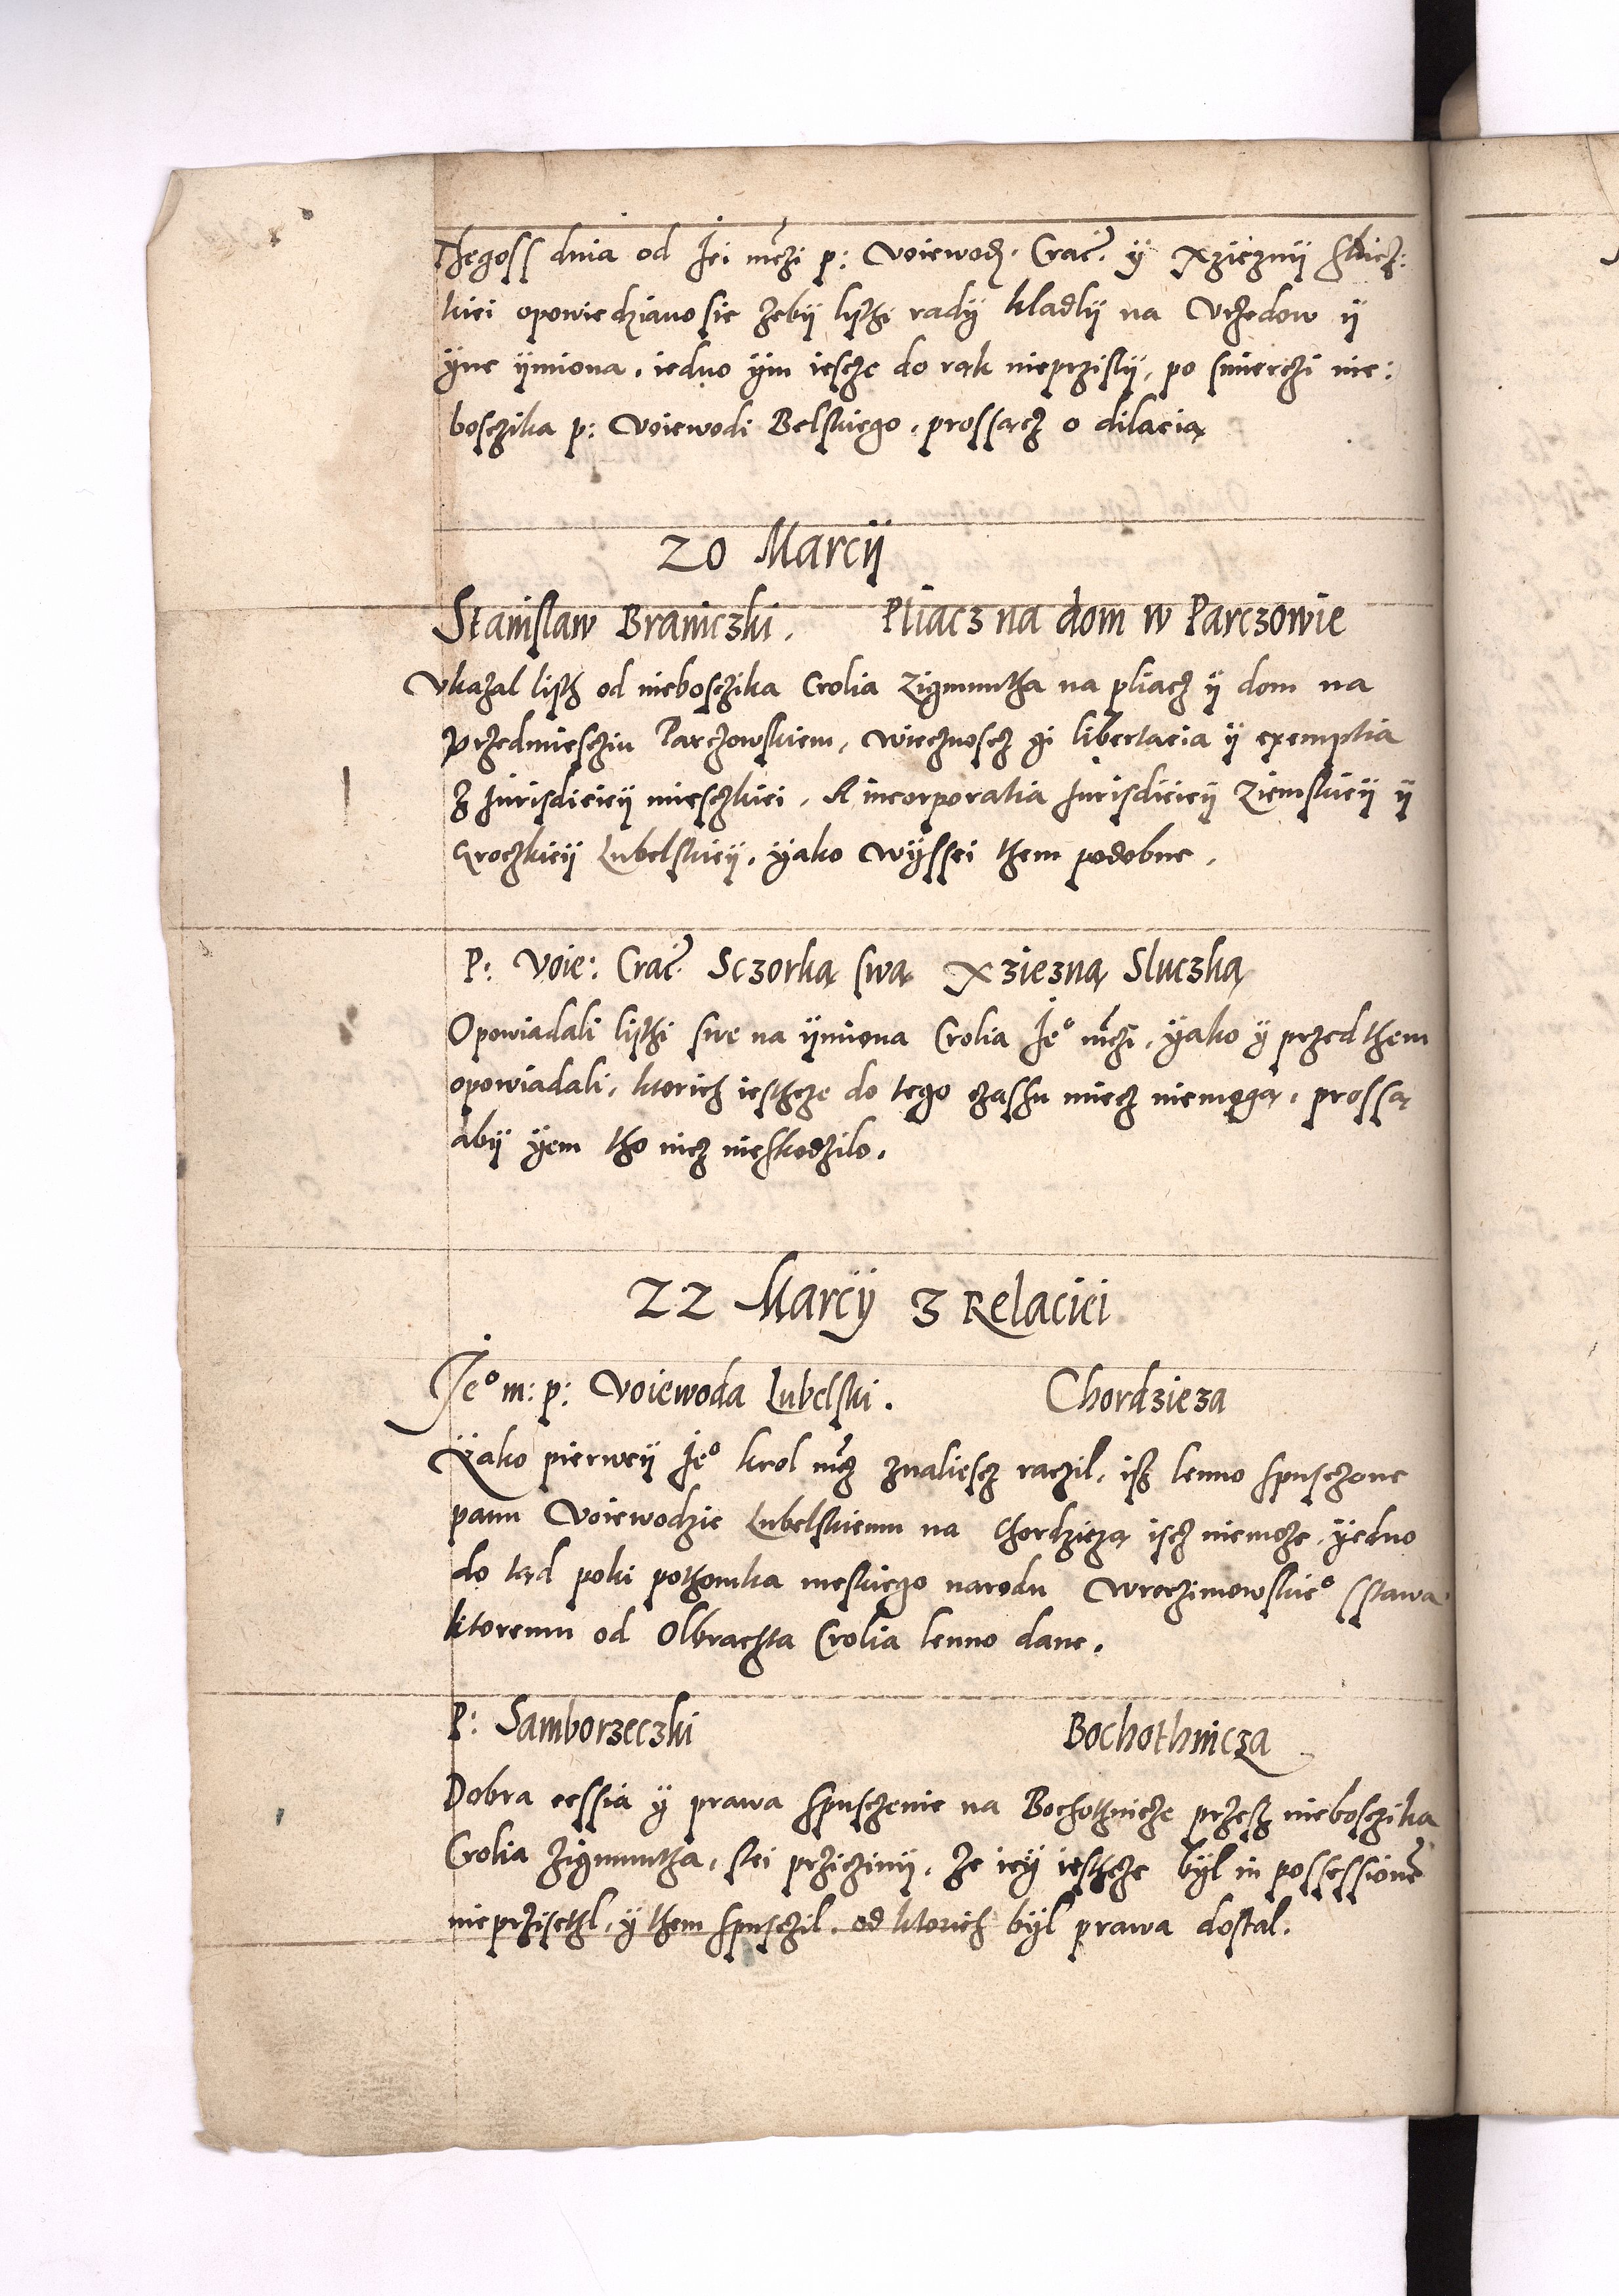 Thegoss dnia od Jei mczi p: Voiewodz. Crac. ÿ Xzieznÿ Slucz:
kiei opowiedziano sie żebÿ listhi radÿ kladlÿ na Vrzedow ÿ
ÿne ÿmiona, iedno ÿm iescze do rąk nieprzislÿ, po smierczi nie:
bosczika p: Voiewodi Belskiego, prossącz o dilacią
20 Marcÿ
Stanislaw Braniczki. Pliacz na dom w Parczowie
Vkazal listh od nieboszika Crolia Zigmuntha na pliacz ÿ dom na
przedmiesciu Parczowskiem, wiecznoscz gi libertacia ÿ exemptia
z Jurisdiciÿ miesczkiei, A incorporatia Jurisdiciÿ Ziemskieÿ ÿ
Groczkieÿ Lubelskieÿ, ÿako wÿssei them podobne,
P: Voie: Crac. Sczorką swą Xzieżną Sluczką
Opowiadali listhi swe na ÿmiona Crolia Jeº mczi, ÿako ÿ przed them
opowiadali, ktorich iesthcze do tego czassu miecz niemogą, prossą
abÿ ÿem tho nicz nieskodzilo.
22 Marcÿ z Relaciei
Jeº m: p: Voiewoda Lubelski. Chordzieza
Yako pierweÿ Jeº krol mcz znaliescz raczil, isz lenno spusczone
panu Voiewodzie Lubelskiemu na Chordzieżą iscz niemoże, ÿedno
do tąd poki pothomka meskiego narodu Wroczimowskieº sstawa
ktoremu od Olbrachta Crolia lenno dane.
P: Samborzeczki Bochothnicza
Dobra cessia ÿ prawa spusczenie na Bochothnicze przesz nieboszika
Crolia Zigmuntha, stei prziczinÿ, że ieÿ iesthcze bÿl in possessionẽ
nieprzisethl, ÿ them spusczil, od ktorich bÿl prawa dostal.